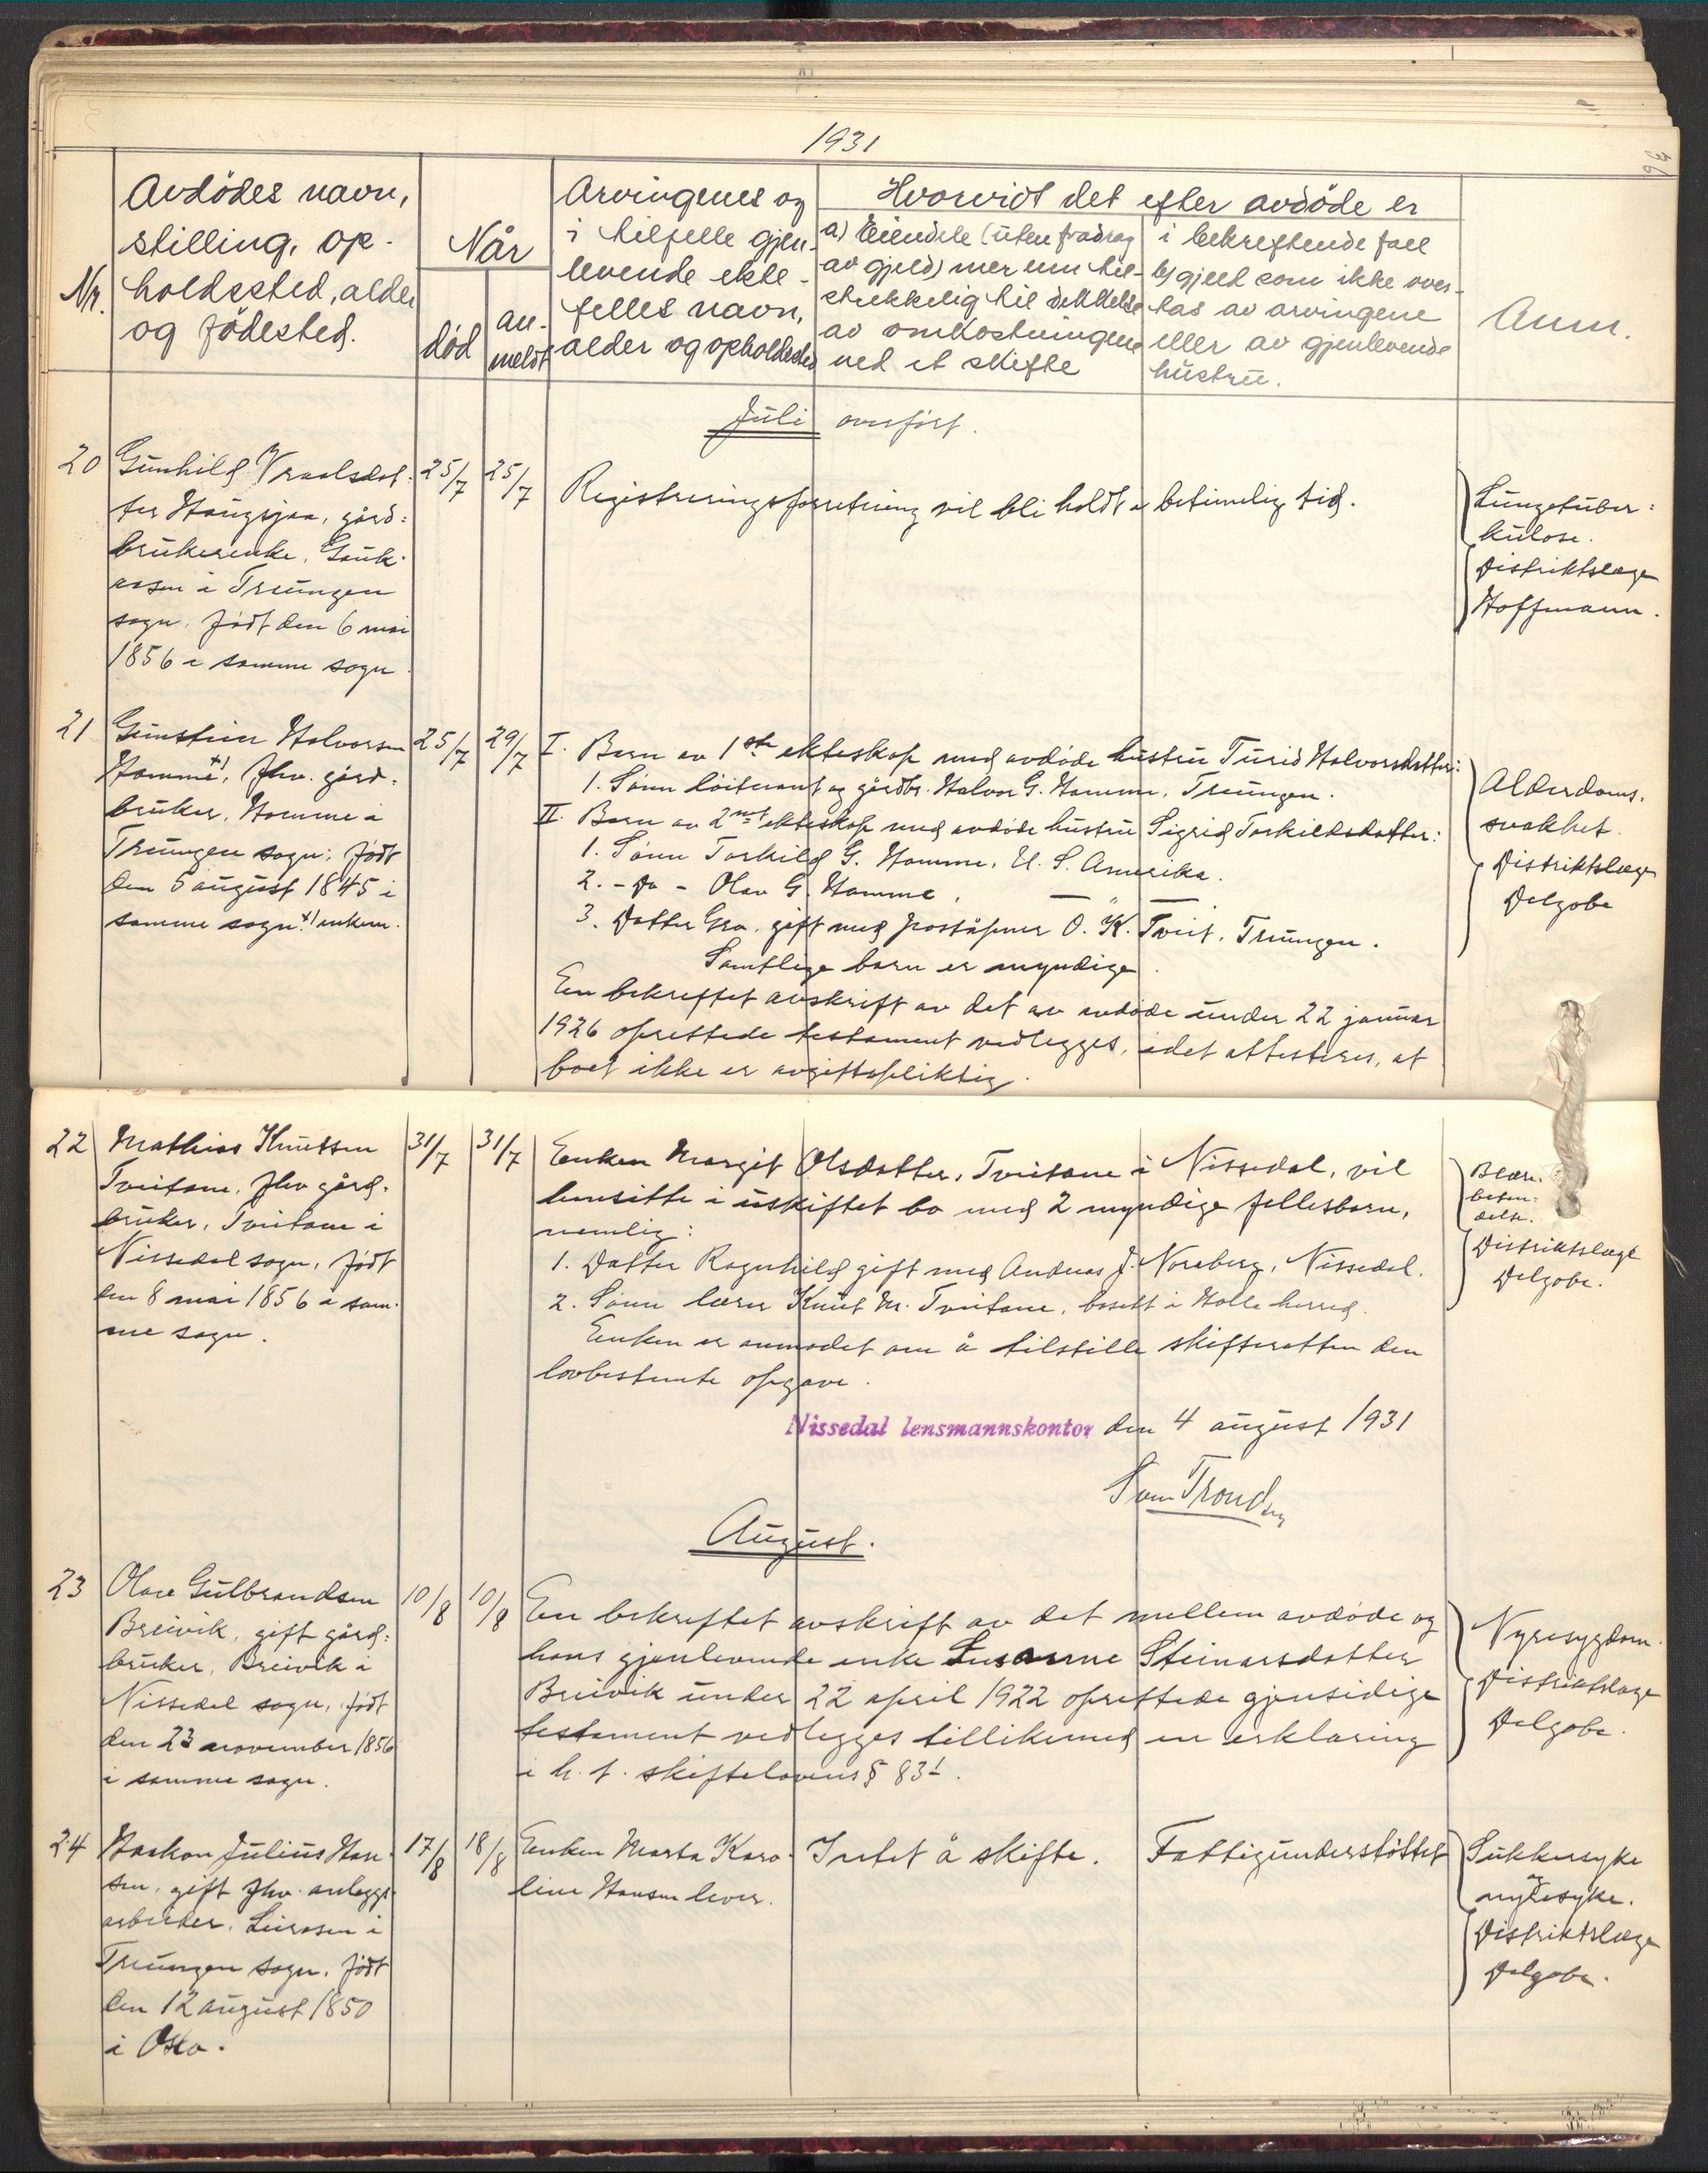 1931
Nr.
Avdödes navn,
stilling, op-
holdssted, alder
og födested.
Når
død
an-
meldt
Arvingenes og
i tilfelle gjen-
levende ekte-
felles navn,
alder og opholdssted
Hvorvidt det efter avdøde er
a) Eiendele (uten fradrag
av gjeld) mer enn til-
strekkelig til dekkelse
av omkostningene
ved et skifte
i bekreftende fall
b) gjeld som ikke over-
tas av arvingene
eller av gjenlevende
hustru.
Anm.
Juli overført.
20
Gunhild Vraalsdot-
ter Haugsjaa, gård-
brukerenke, Gauk-
aasen i Treungen
sogn, født den 6 mai
1856 i samme sogn.
25/7
25/7
Registreringsforretning vil bli holdt i betimelig tid.
Lungetuber-
kulose.
Distriktslæge
Hoffmann.
21
Gunstein Halvorsen
Homme +), fhv. gård-
bruker, Homme i
Treungen sogn, født
den 5 august 1845 i
samme sogn. +) enkem.
25/7
29/7
I. Barn av 1ste ekteskap med avdøde hustru Turid Halvorsdatter:
1. Sønn løitenant og gårdbr. Halvor G. Homme, Treungen.
II. Barn av 2net ekteskap med avdøde hustru Sigrid Torkildsdatter:
1. Sønn Torkild G. Homme, U. S. Amerika.
2. - Do - Olav G. Homme, — " —
3. Datter Gro, gift med poståpner O. K. Tveit, Treungen.
Samtlige barn er myndige.
En bekreftet avskrift av det av avdøde under 22 januar
1926 oprettede testament vedlegges, idet attesteres, at
boet ikke er avgiftspliktig.
Alderdoms-
svakhet.
Distriktslæge
Delgobe
22
Mathias Knutsen
Tveitane, fhv gård-
bruker, Tveitane i
Nissedal sogn, født
den 8 mai 1856 i sam-
me sogn.
31/7
31/7
Enken Margit Olsdatter, Tveitane i Nissedal, vil
hensitte i uskiftet bo med 2 myndige fellesbarn,
nemlig:
1. Datter Ragnhild gift med Andreas J. Noraberg, Nissedal.
2. Sønn lærer Knut M. Tveitane, bosatt i Holla herred.
Enken er anmodet om å tilstille skifteretten den
lovbestemte opgave.
Blære-
beten-
delse.
Distriktslæge
Delgobe.
Nissedal lensmannskontor den 4 august 1931
August.
23
Olav Gulbrandsen
Breivik, gift gård-
bruker, Breivik i
Nissedal sogn, født
den 23 november 1856
i samme sogn.
10/8
10/8
En bekreftet avskrift av det mellem avdøde og
hans gjenlevende enke Susanne Steinarsdatter
Breivik under 22 april 1922 oprettede gjensidige
testament vedlegges tillikemed en erklæring
i h. t. skiftelovens § 83 1.
Nyresygdom.
Distriktslæge
Delgobe.
24
Haakon Julius Han-
sen, gift fhv. anleggs-
arbeider, Leirosen i
Treungen sogn, født
den 12 august 1850
i Oslo.
17/8
18/8
Enken Marta Karo-
line Hansen lever.
Intet å skifte.
Fattigunderstøttet
Sukkersyke
nyresyke.
Distriktslæge
Delgobe.